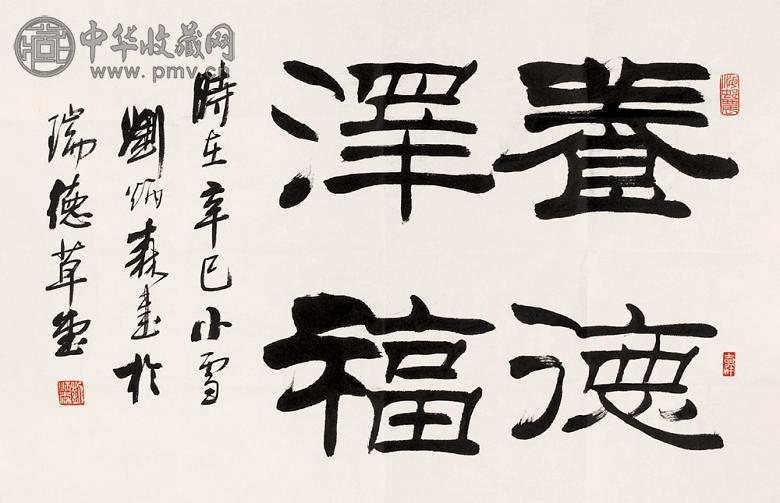 養德
澤福
時在辛巳小雪
劉炳森書於
瑞德草堂
中华收藏网
www.pmv.cn